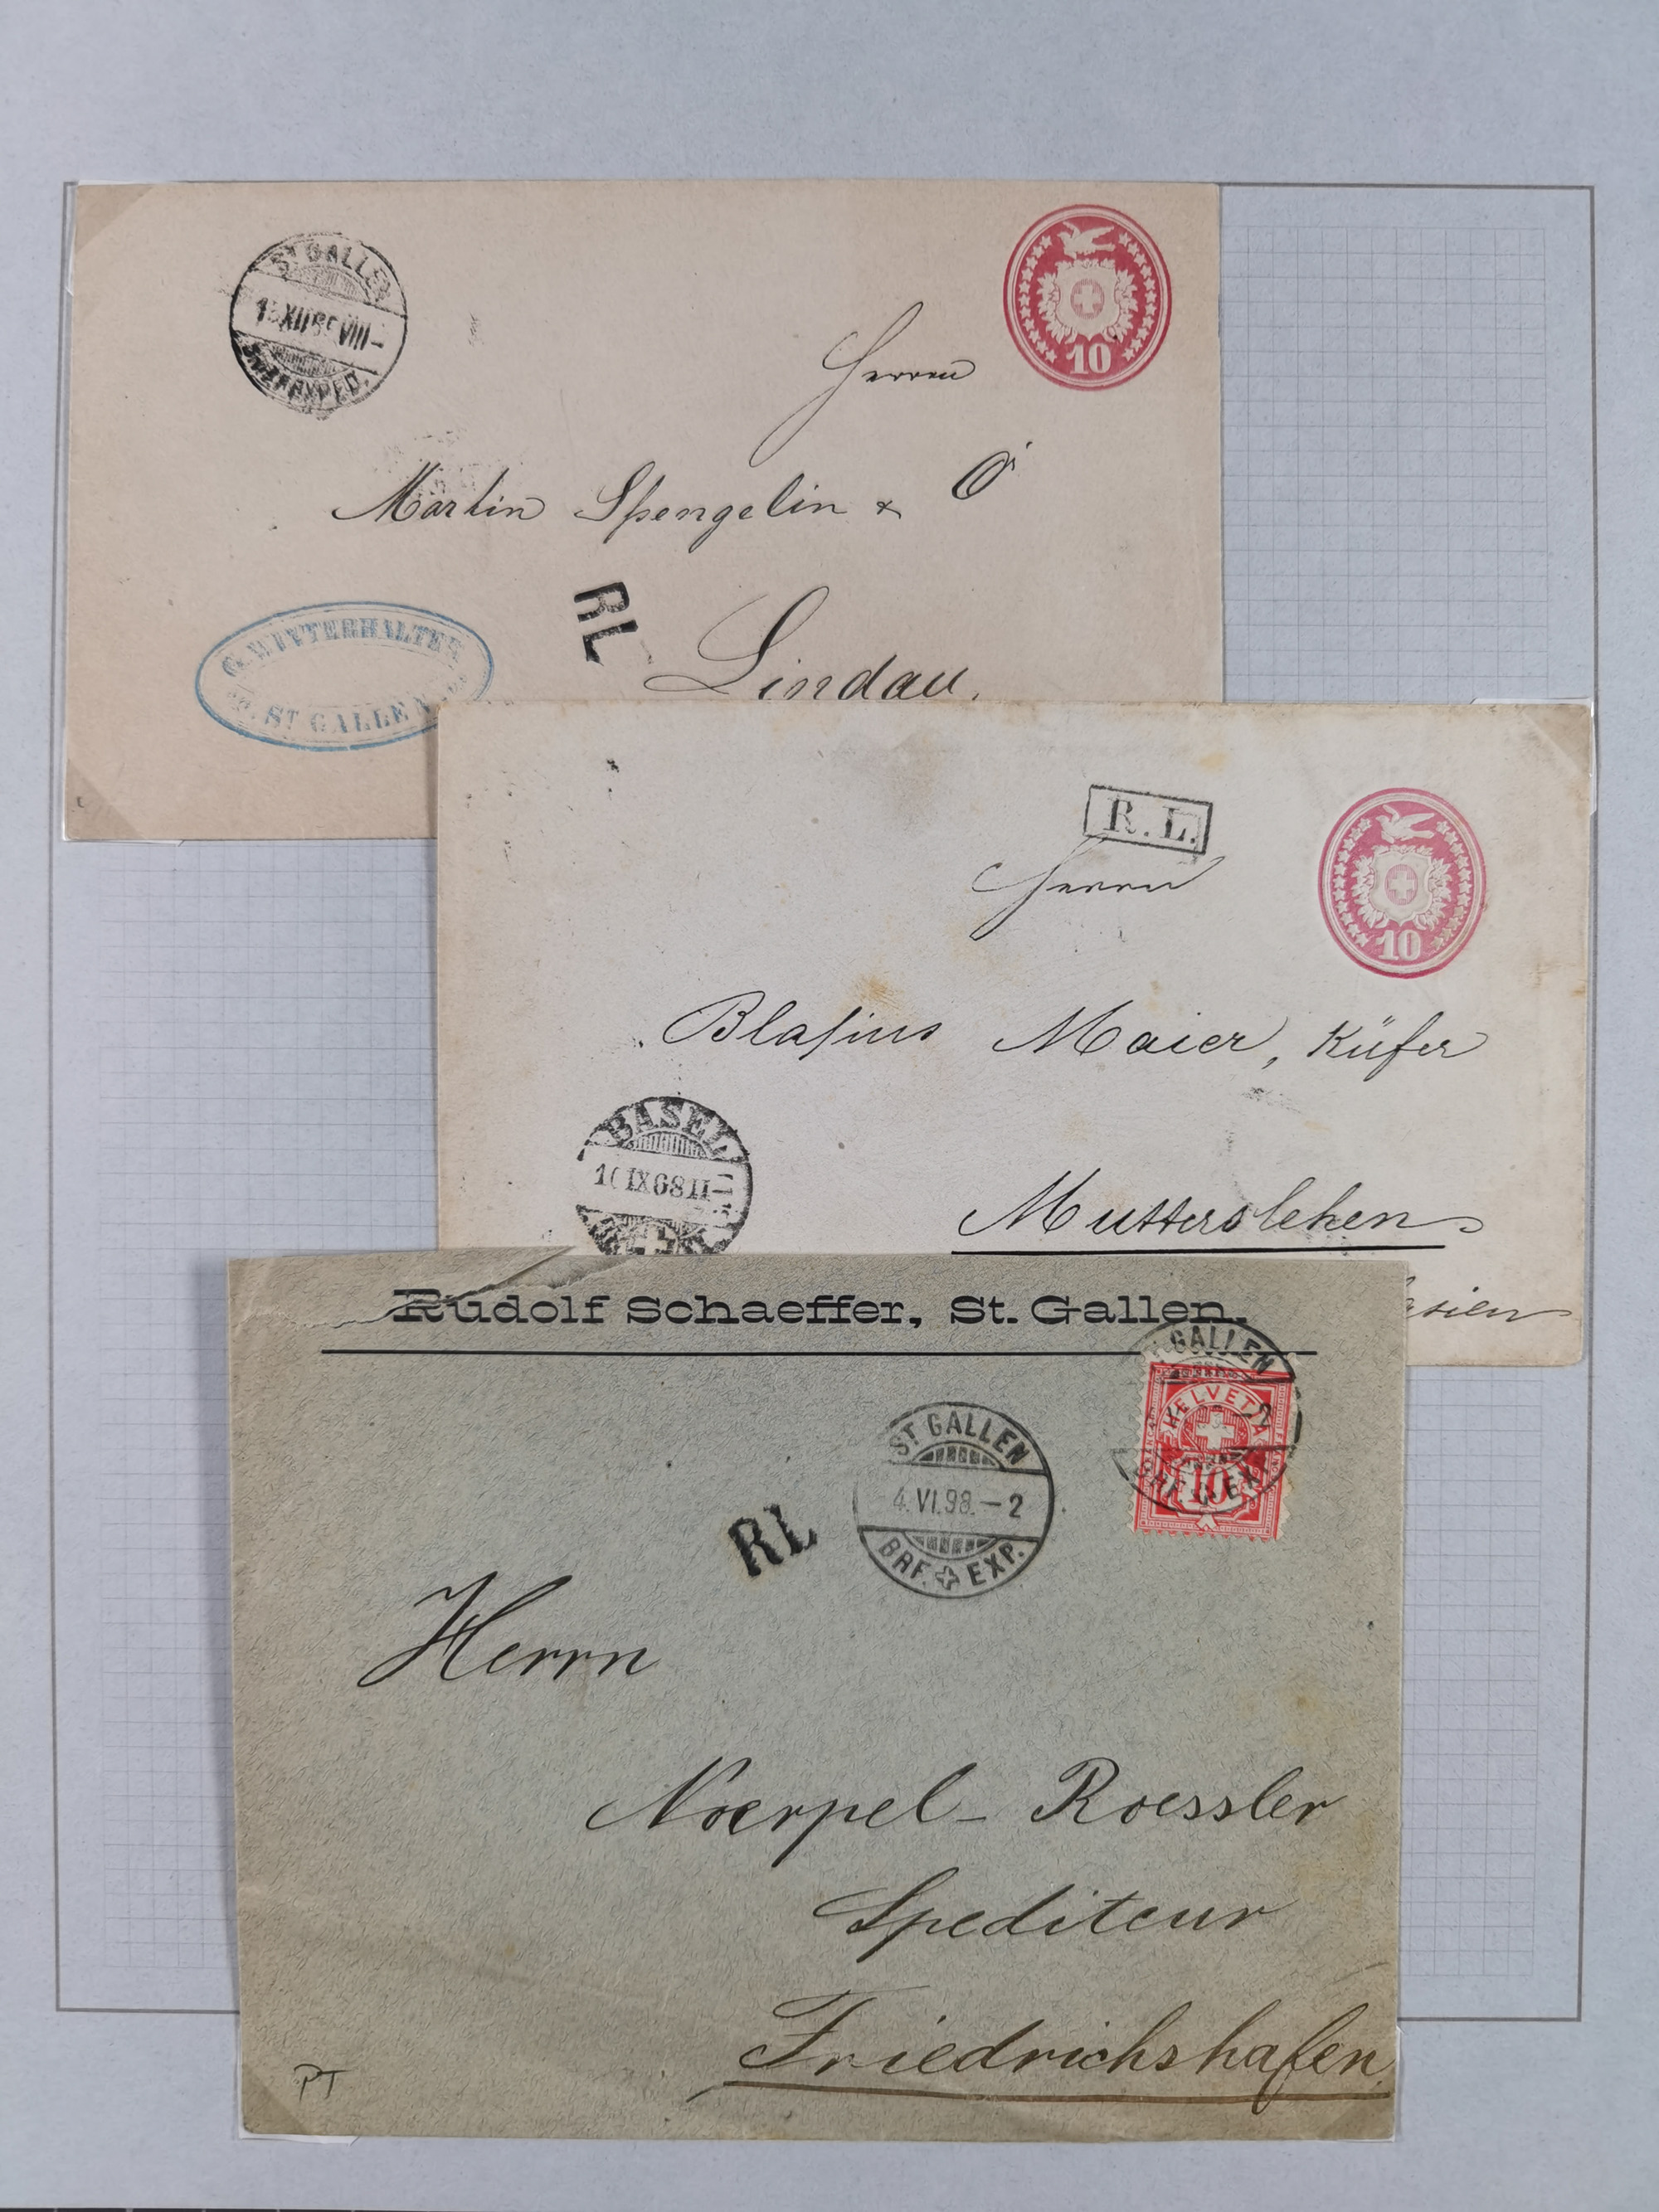 ST GALLEN
XII 6 VIII-
10
Herrn
Martin Spengelin & Cⁱ
RL
Lindau.
G. WINTERHALTER
ST GALLEN
R. L.
Herrn
10
Blasius Maier, Küfer
BASEL
IX 68 II-
Mutterslehen
asien
Rudolf Schaeffer, St. Gallen.
GALLEN
HELVETIA
10
ST. GALLEN
4. VI. 98. – 2
BRF. EXP.
RL
Herrn
Noerpel- Roessler
Spediteur
Friedrichshafen.
PT